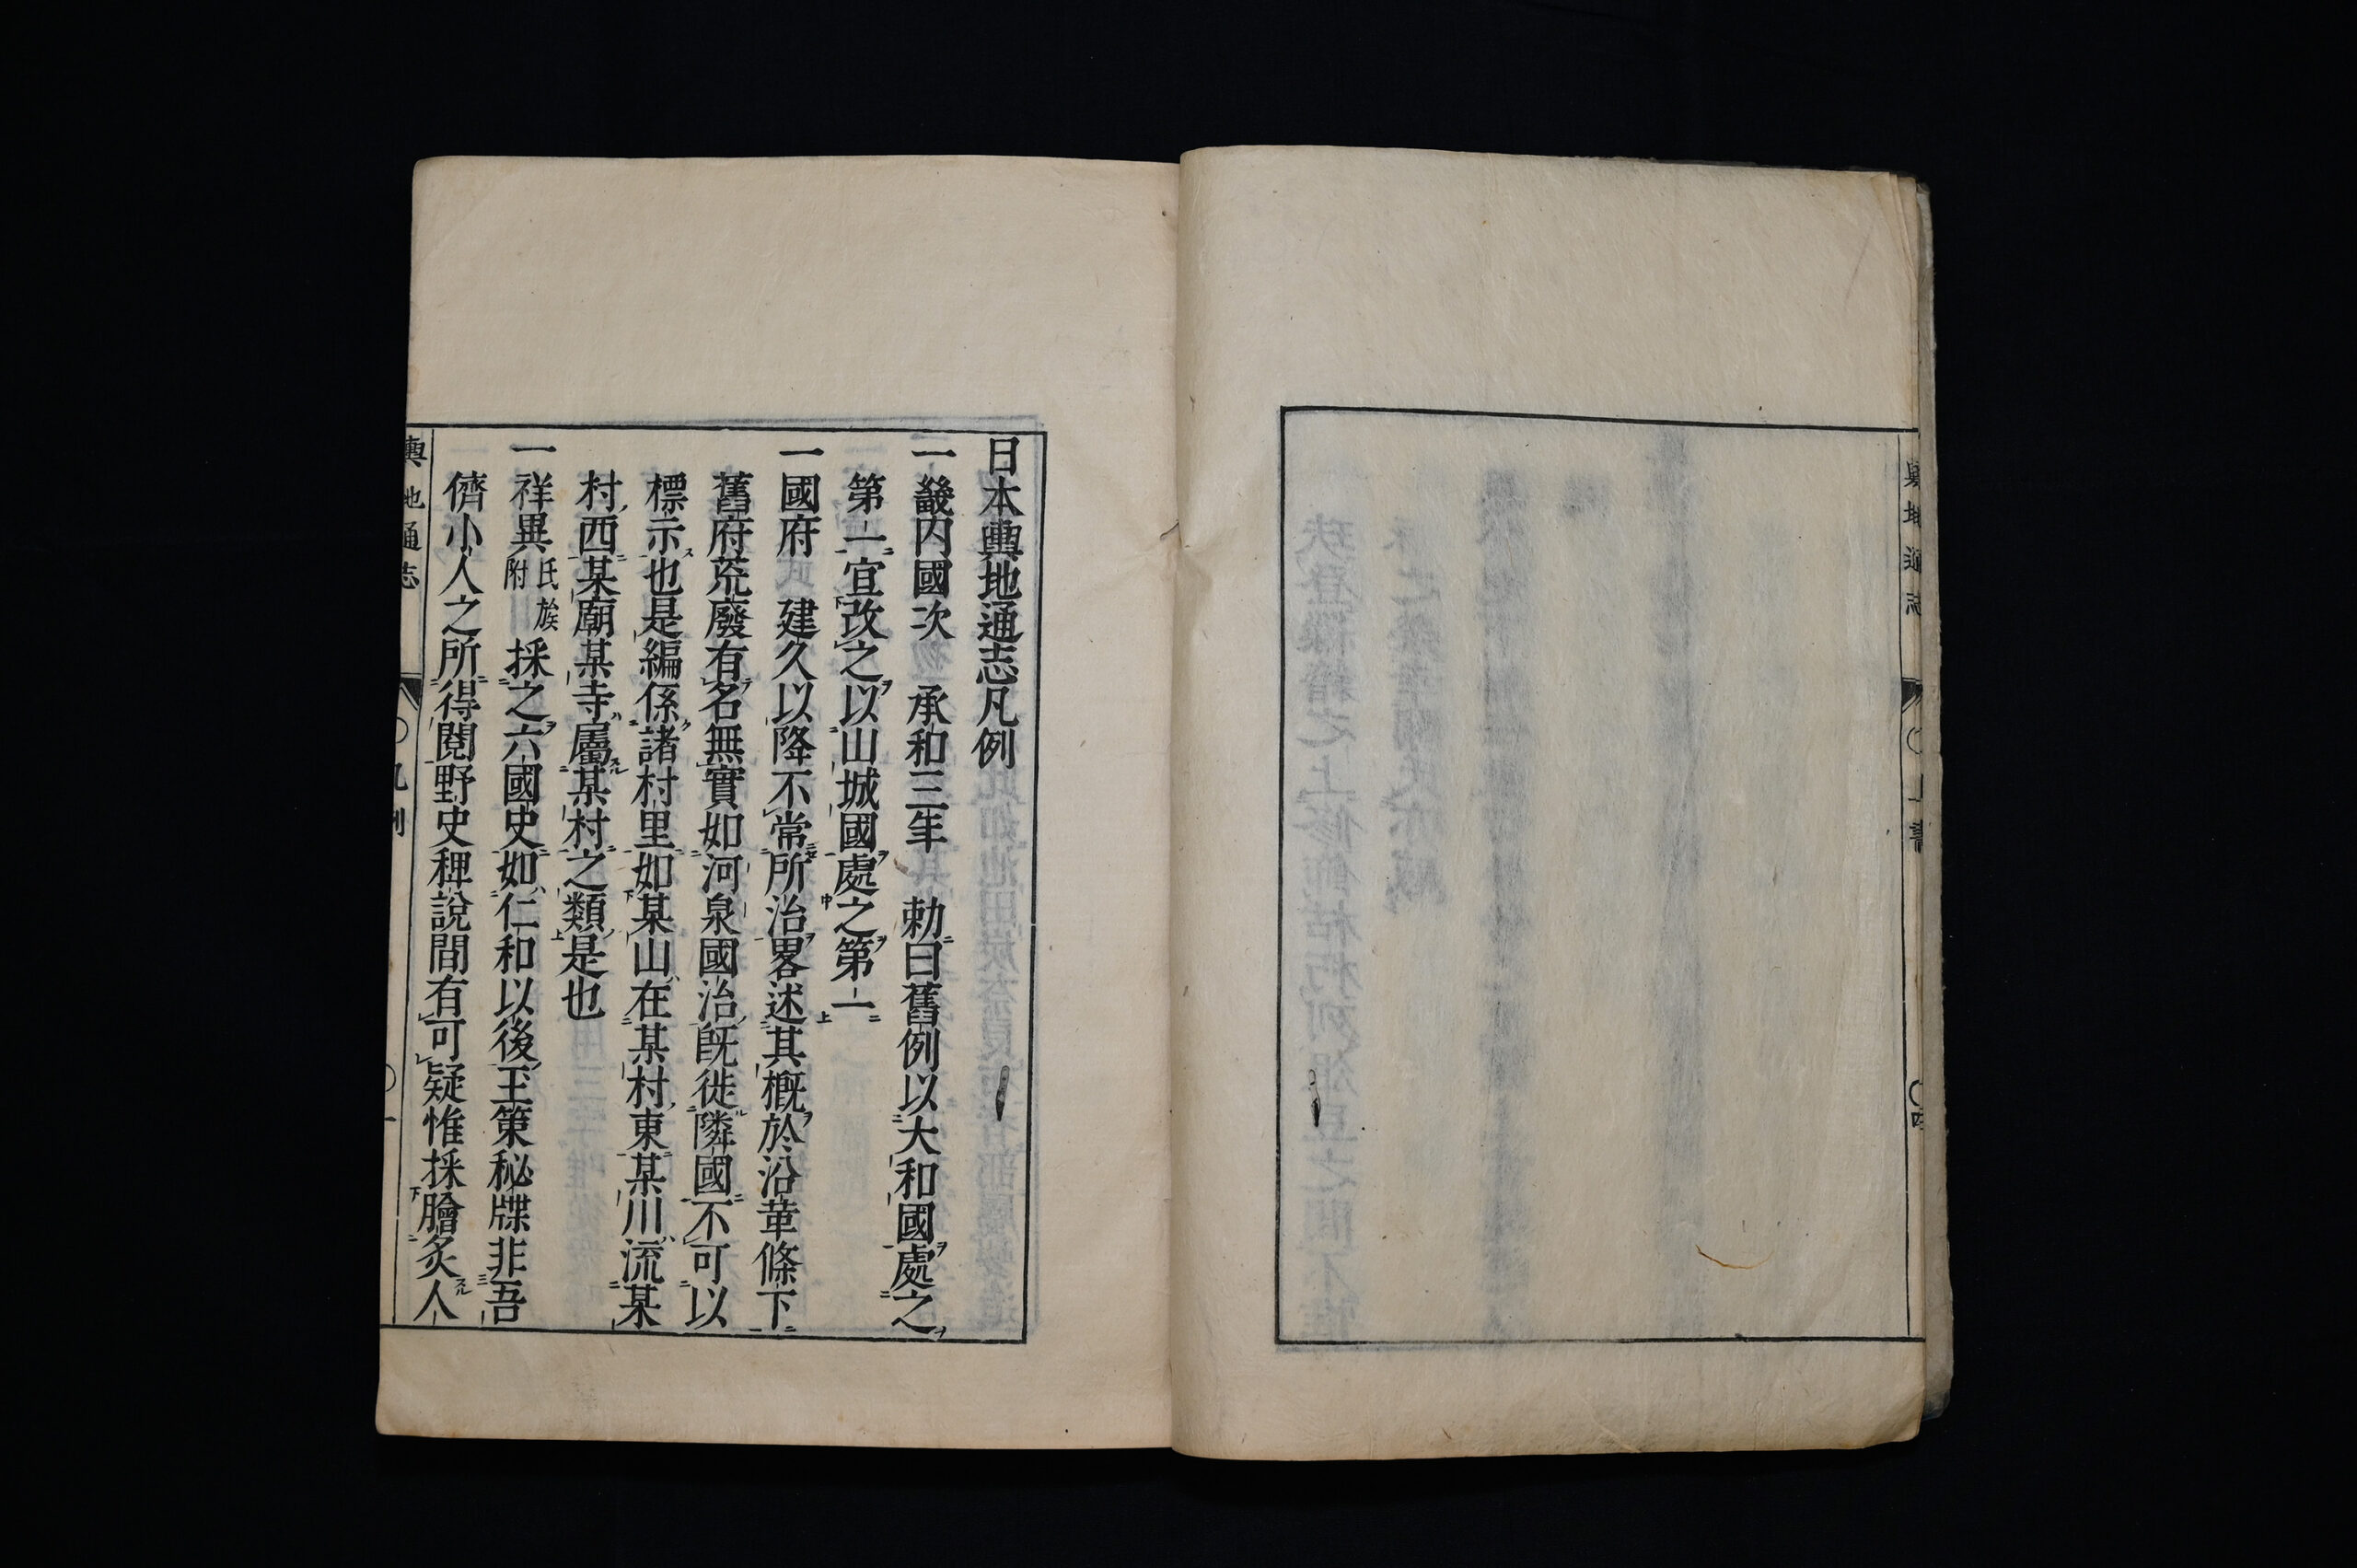 日本輿地通志凡例
一畿内國次　承和三年　勅曰舊例以大和國處之
第一宜改之以山城國處之第一
一國府　建久以降不常所治畧述其概於沿革條下
舊府荒廢有名無實如河泉國治既徙隣國不可以
標示也是編係諸村里如某山在某村東某川流某
村西某廟某寺屬某村之類是也
一祥異氏族附　採之六國史如仁和以後玉策秘牒非吾
儕小人之所得閱野史稗說間有可疑惟採膾炙人
輿地通志
凡例